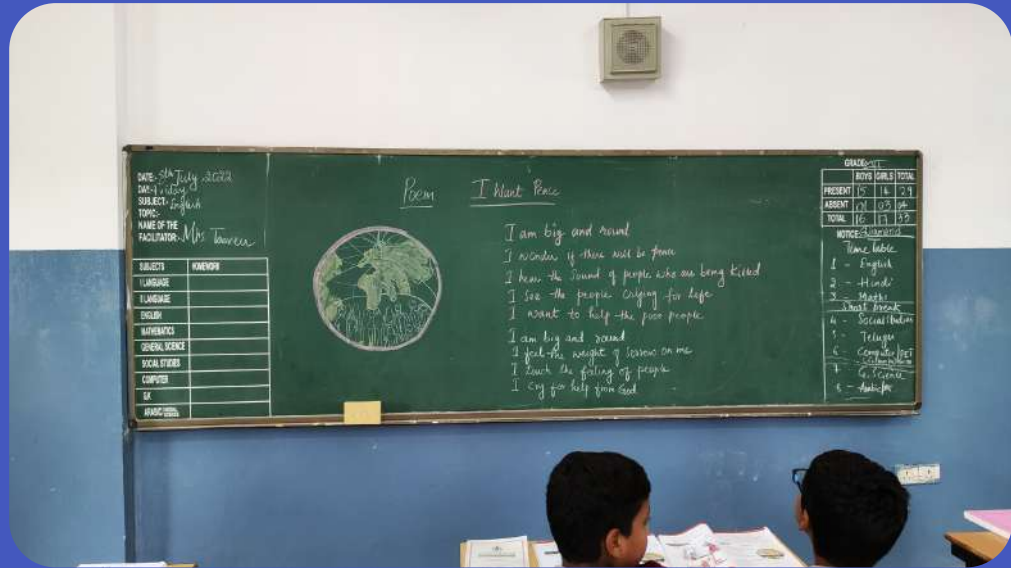 DATE:- 5th July 2022
DAY:- Friday
SUBJECT:- English
TOPIC:-
NAME OF THE
FACILITATOR:- Mrs.
SUBJECTS HOMEWORK
I LANGUAGE
II LANGUAGE
ENGLISH
MATHEMATICS
GENERAL SCIENCE
SOCIAL STUDIES
COMPUTER
G.K
ARABIC
Poem I Want Peace
I am big and round
I wonder if there will be peace
I hear the sound of people who are being killed
I see the people crying for life
I want to help the poor people
I am big and round
I feel the weight of sorrow on me
I touch the feeling of people
I cry for help from God
GRADE:- VI
BOYS GIRLS TOTAL
PRESENT 15 14 29
ABSENT 01 03 04
TOTAL 16 17 33
NOTICE: Diamond
Time table
1 - English
2 - Hindi
3 - Maths
Short break
4 - Social Studies
5 - Telugu
6 - Computer/PET
7 G. Science
8 -